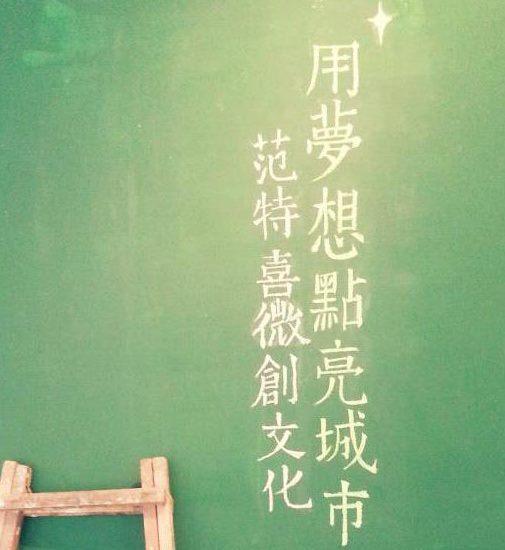 用夢想點亮城市
范特喜微創文化